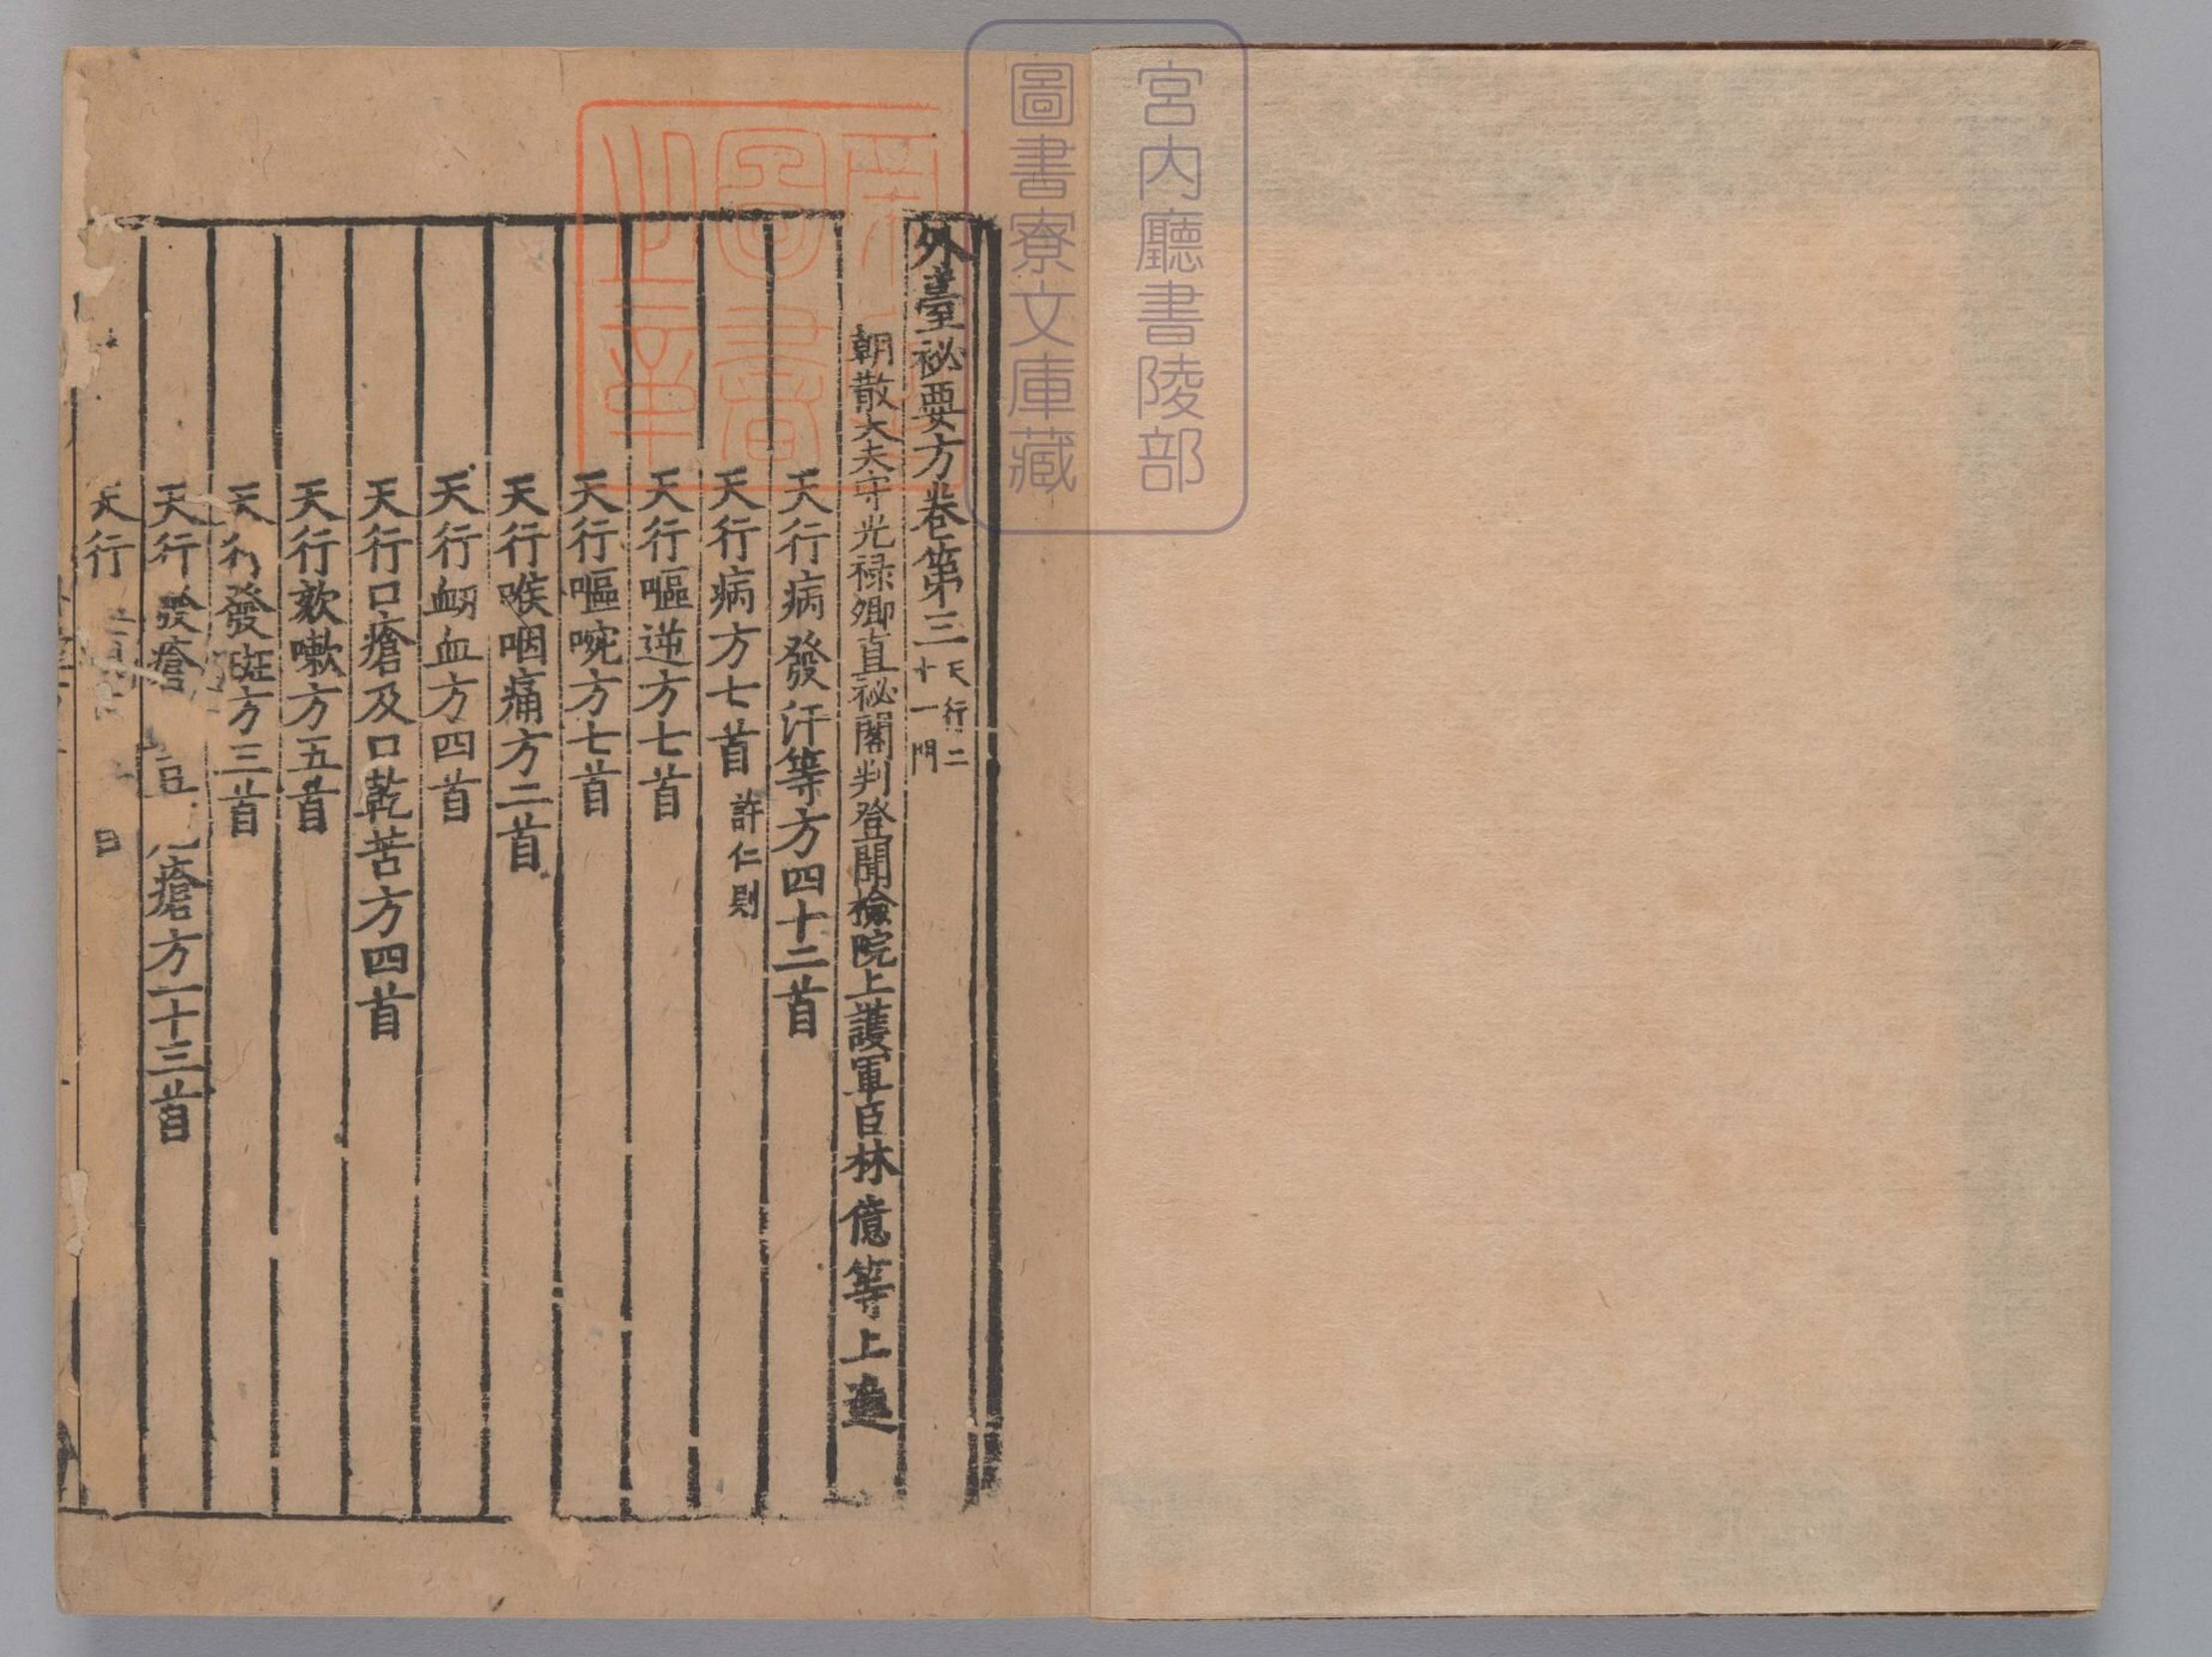 宮内廳書陵部
圖書寮文庫藏
外臺祕要方卷第三天行二十一門
朝散大夫守光祿卿直祕閣判登聞檢院上護軍臣林億等上進
天行病發汗等方四十二首
天行病方七首許仁則
天行嘔逆方七首
天行嘔啘方七首
天行喉咽痛方二首
天行衂血方四首
天行口瘡及口乾苦方四首
天行欬嗽方五首
天行發斑方三首
天行發瘡豆瘡方一十三首
天行